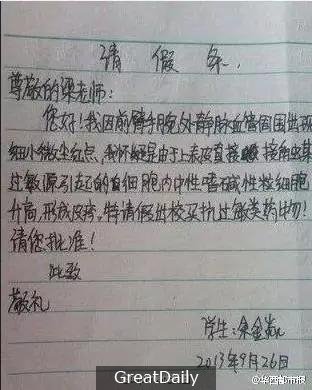 请假条
尊敬的梁老师：
您好！我因前臂手腕外静脉血管周围出现
细小微尘红点，我怀疑是由于上表皮直接接触某
过敏源引起的白细胞内中性嗜碱性粒细胞
升高，形成皮疹，特请假出校买抗过敏类药物！
请您批准！
此致
敬礼
学生：余金
2013年9月26日
@华西都市报
GreatDaily